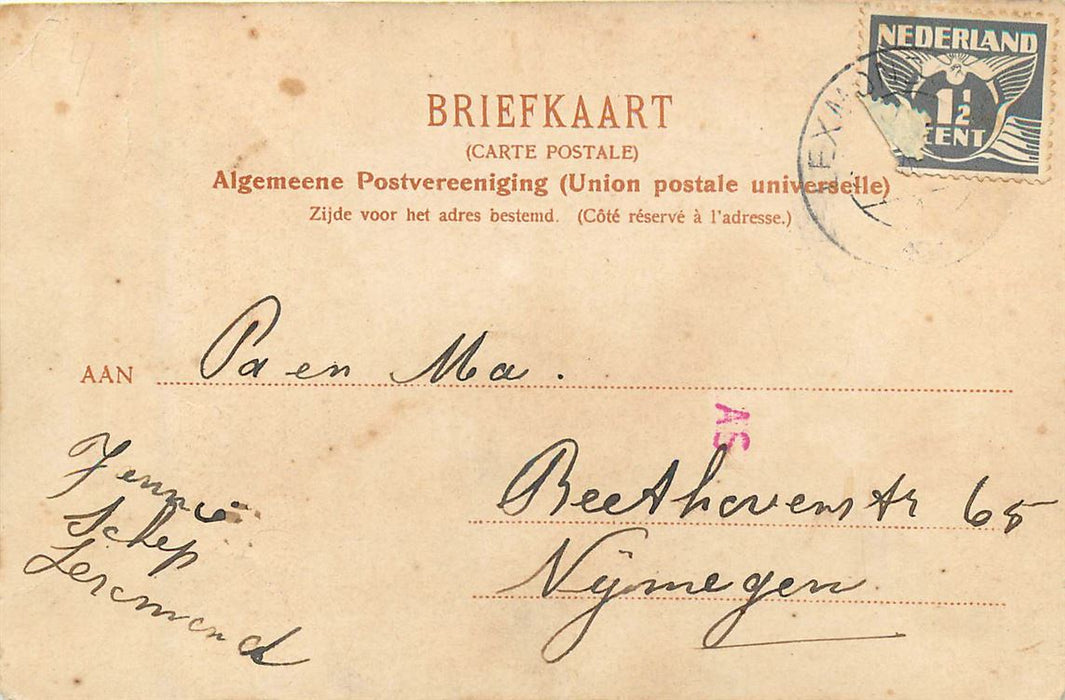 NEDERLAND
1½
CENT
LEXMOND
BRIEFKAART
(CARTE POSTALE)
Algemeene Postvereeniging (Union postale universelle)
Zijde voor het adres bestemd. (Côté réservé à l'adresse.)
AAN Pa en Ma.
AS
Beethovenstr 65
Nijmegen
Jennie
Schep
Lexmond